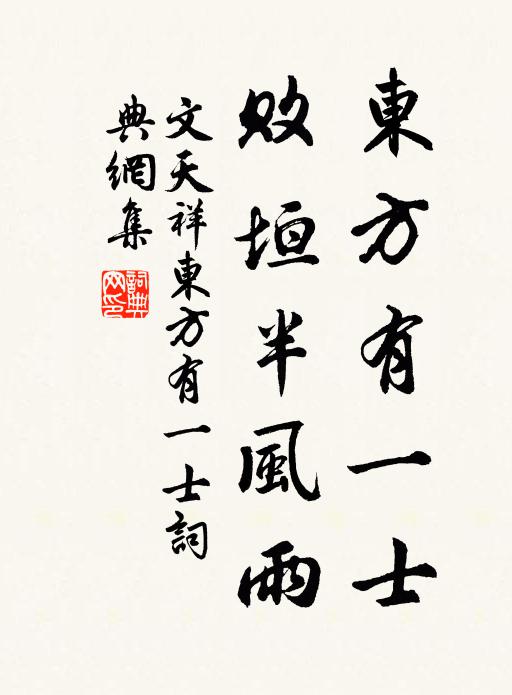 東方有一士
敗垣半風雨
文天祥東方有一士詞
典網集
詞典網印